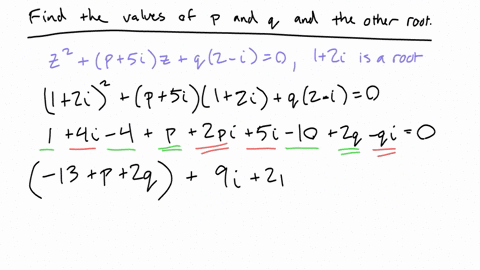 Find the values of p and q and the other root.
z² + (p+5i)z + q(2-i) = 0, 1+2i is a root
(1+2i)² + (p+5i)(1+2i) + q(2-i) = 0
1 + 4i - 4 + p + 2pi + 5i - 10 + 2q - qi = 0
(-13 + p + 2q) + 9i + 2